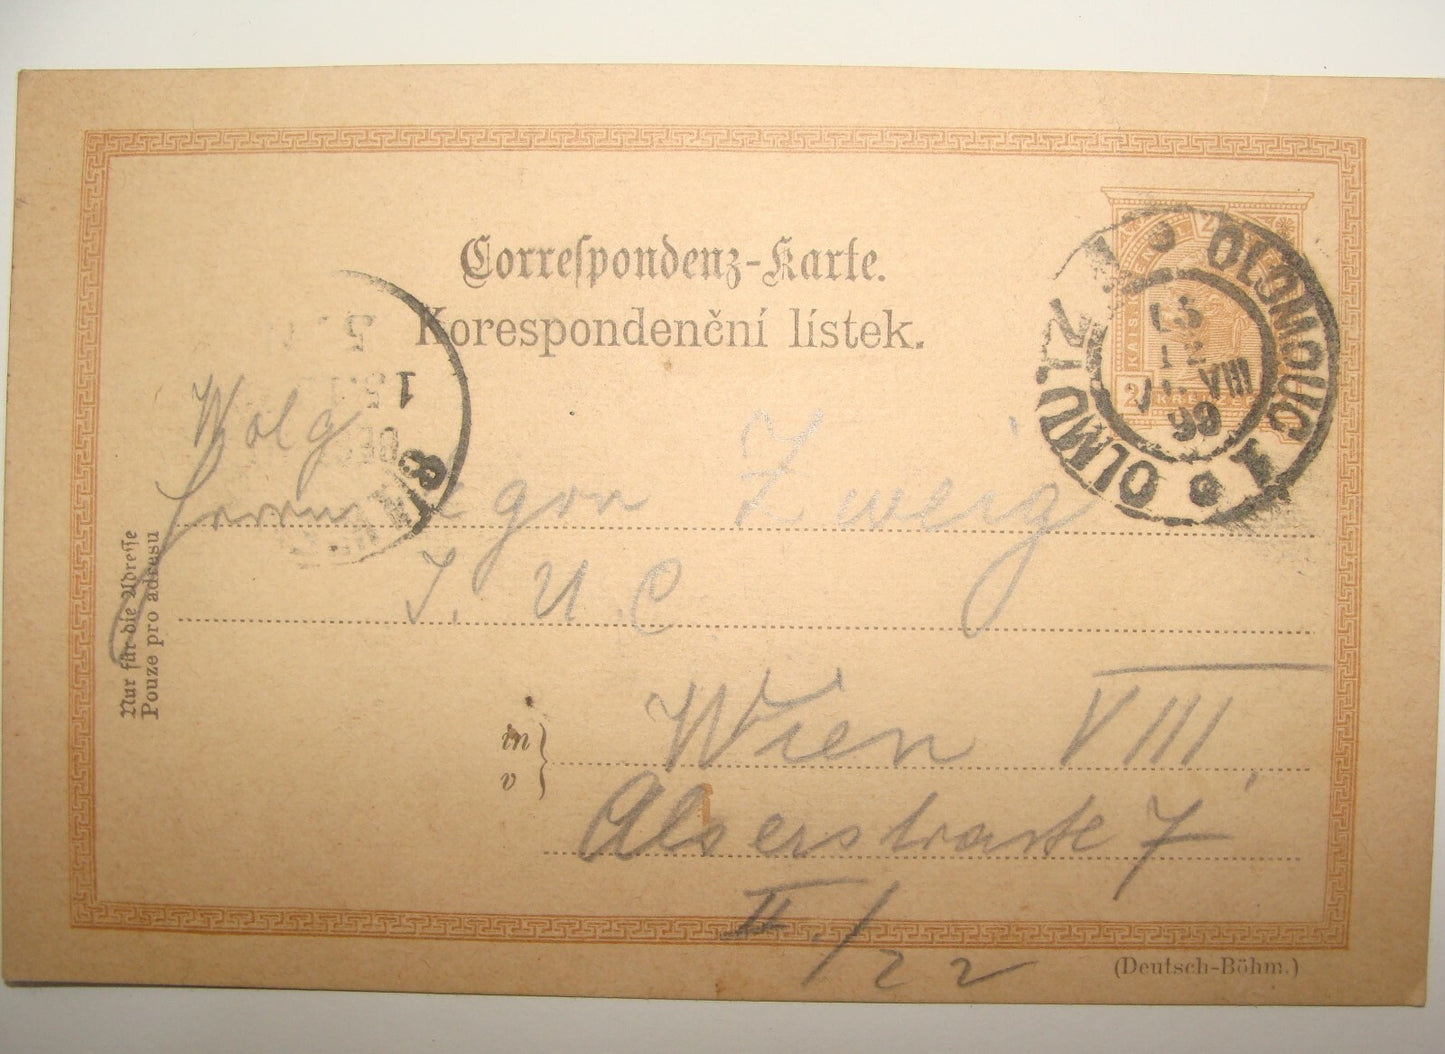 Correspondenz-Karte.
Korespondenční lístek.
OLMÜTZ 1 OLOMOUC 1
VIII
99
2 KREUZER
1
8
Wolg
Herrn Egon Zweig
J. U. C
Nur für die Adresse
Pouze pro adresu
in
v
Wien VIII,
Alserstrasse 7
II./22
(Deutsch-Böhm.)